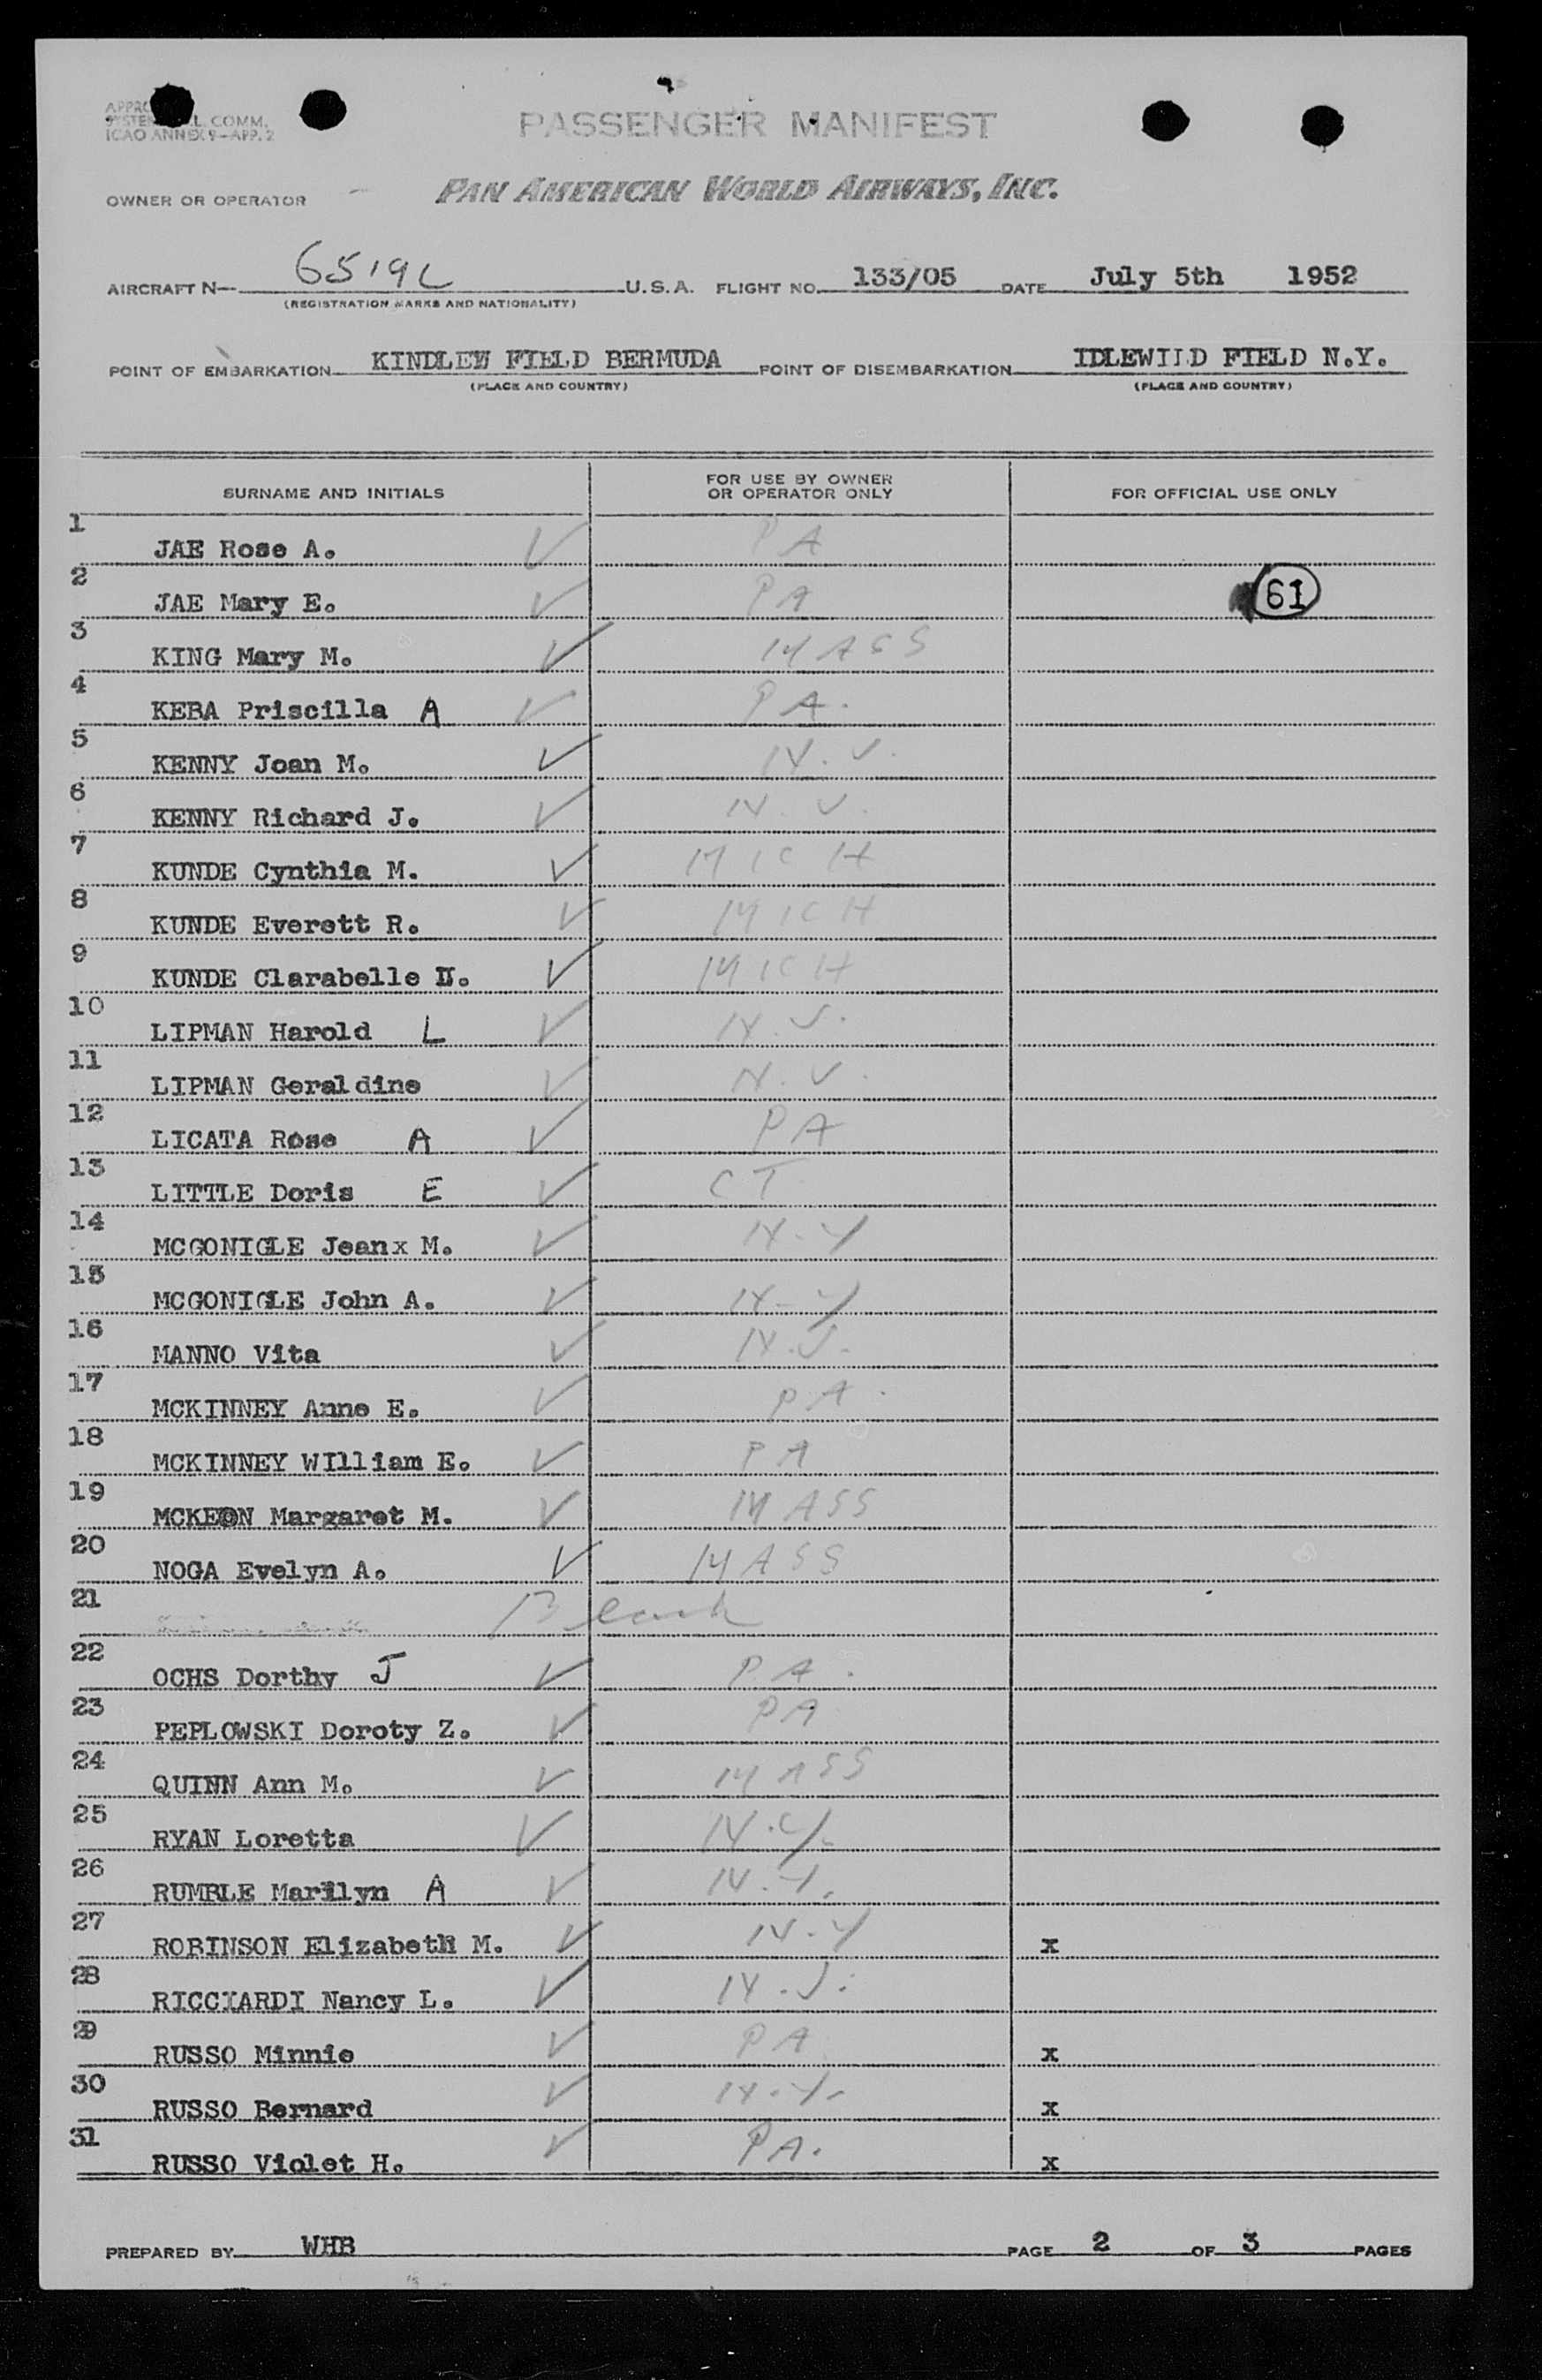 PASSENGER MANIFEST
L. COMM.
ICAO ANNEX 9-APP. 2
OWNER OR OPERATOR PAN AMERICAN WORLD AIRWAYS, INC.
AIRCRAFT N- 6519C U.S.A. FLIGHT NO. 133/05 DATE July 5th 1952
(REGISTRATION MARKS AND NATIONALITY)
POINT OF EMBARKATION KINDLEW FIELD BERMUDA POINT OF DISEMBARKATION IDLEWILD FIELD N.Y.
(PLACE AND COUNTRY) (PLACE AND COUNTRY)
SURNAME AND INITIALS FOR USE BY OWNER OR OPERATOR ONLY FOR OFFICIAL USE ONLY
1 JAE Rose A. ✓ PA
2 JAE Mary E. ✓ PA 61
3 KING Mary M. ✓ MASS
4 KEBA Priscilla A ✓ PA.
5 KENNY Joan M. ✓ N.J.
6 KENNY Richard J. ✓ N.J.
7 KUNDE Cynthia M. ✓ MICH
8 KUNDE Everett R. ✓ MICH
9 KUNDE Clarabelle ✓ MICH
10 LIPMAN Harold L ✓ N.J.
11 LIPMAN Geraldine ✓ N.J.
12 LICATA Rose A ✓ PA
13 LITTLE Doris E ✓ CT
14 MCGONIGLE Jeanx M. ✓ N.Y
15 MCGONIGLE John A. ✓ N.Y
16 MANNO Vita ✓ N.J.
17 MCKINNEY Anne E. ✓ PA.
18 MCKINNEY WIlliam E. ✓ PA
19 MCKEON Margaret M. ✓ MASS
20 NOGA Evelyn A. ✓ MASS
21 Blank
22 OCHS Dorthy J ✓ PA.
23 PEPLOWSKI Doroty Z. ✓ PA
24 QUINN Ann M. ✓ MASS
25 RYAN Loretta ✓ N.Y.
26 RUMBLE Marilyn A ✓ N.Y.
27 ROBINSON Elizabeth M. ✓ N.Y x
28 RICCIARDI Nancy L. ✓ N.J.
29 RUSSO Minnie ✓ PA x
30 RUSSO Bernard ✓ N.Y. x
31 RUSSO Violet H. ✓ PA. x
PREPARED BY WHB PAGE 2 OF 3 PAGES